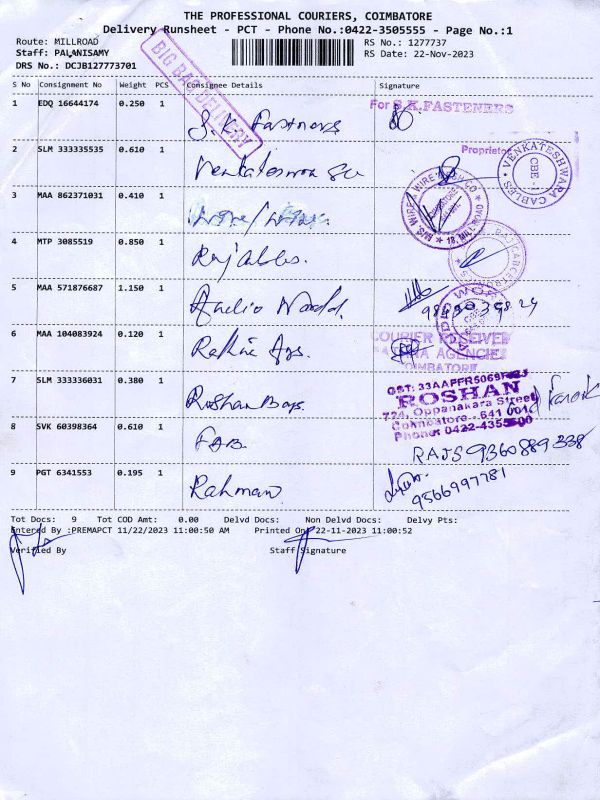 THE PROFESSIONAL COURIERS, COIMBATORE
Delivery Runsheet - PCT - Phone No.:0422-3505555 - Page No.:1
Route: MILLROAD
RS No.: 1277737
Staff: PALANISAMY
RS Date: 22-Nov-2023
DRS No.: DCJB127773701
BIG BAG DELIVERY
S No Consignment No Weight PCS Consignee Details Signature
1 EDQ 16644174 0.250 1 S.K. Fastners
For S.K.FASTENERS
2 SLM 333335535 0.610 1 Venkateswara
Proprietor
VENKATESHWARA CABLES
CBE-1
3 MAA 862371031 0.410 1
4 MTP 3085519 0.850 1 Raj Cables.
5 MAA 571876687 1.150 1
AUDIO WORLD
6 MAA 104083924 0.120 1
COURIER RECEIVED
AGENCIEZ
COIMBATORE
7 SLM 333336031 0.380 1 Roshan Bags.
GST: 33AAFFR5069
ROSHAN
724, Oppanakara Street
Coimbatore - 641 001.
Phone: 0422-4355500
8 SVK 60398364 0.610 1 FAB.
RAJS 9360889338
9 PGT 6341553 0.195 1 Rahman
9566997781
Tot Docs: 9 Tot COD Amt: 0.00 Delvd Docs: Non Delvd Docs: Delvy Pts:
Entered By :PREMAPCT 11/22/2023 11:00:50 AM Printed On: 22-11-2023 11:00:52
Verified By Staff Signature